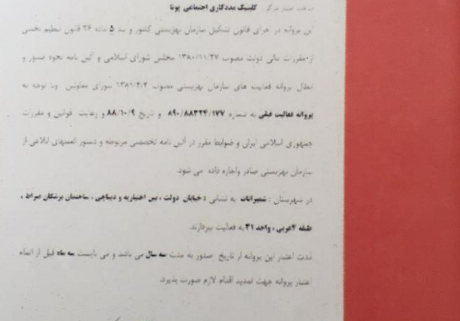 کلینیک مددکاری اجتماعی پونا
این پروانه در اجرای قانون تشکیل سازمان بهزیستی کشور و بند ۵ ماده ۲۶ قانون تنظیم بخشی
ازمقررات مالی دولت مصوب ۱۳۸۰/۱۱/۲۷ مجلس شورای اسلامی و آئین نامه نحوه صدور و
ابطال پروانه فعالیت های سازمان بهزیستی مصوب ۱۳۸۱/۲/۴ شورای معاونین وبا توجه به
پروانه فعالیت قبلی به شماره ۸۹۰/۸۸۳۲۴/۱۷۷ و تاریخ ۸۸/۱۰/۹ و رعایت قوانین و مقررات
جمهوری اسلامی ایران و ضوابط مقرر در آئین نامه تخصصی مربوطه و دستور العملهای ابلاغی از
سازمان بهزیستی صادر واجازه داده می شود.
در شهرستان : شمیرانات به نشانی : خیابان دولت ، بین اختیاریه و دیباجی ، ساختمان پزشکان صراط ،
طبقه ۴غربی ، واحد ۳۱ به فعالیت بپردازند.
مدت اعتبار این پروانه از تاریخ صدور به مدت سه سال می باشد و می بایست سه ماه قبل از اتمام
اعتبار پروانه جهت تمدید اقدام لازم صورت پذیرد.